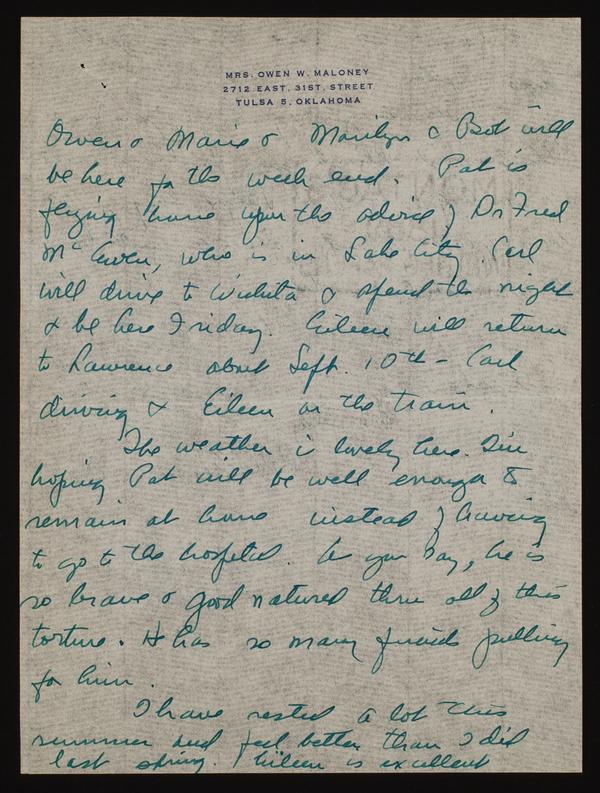 MRS. OWEN W. MALONEY
2712 EAST. 31ST. STREET
TULSA 5, OKLAHOMA
Owen & Marie & Marilyn & Bob will
be here for the week end. Pat is
flying home upon the advice of Dr Fred
McEwen, who is in Lake City. Carl
will drive to Wichita & spend the night
& be here Friday. Eileen will return
to Lawrence about Sept. 10th - Carl
driving & Eileen on the train.
The weather is lovely here. I'm
hoping Pat will be well enough to
remain at home instead of having
to go to the hospital. As you say, he is
so brave & good natured thru all of this
torture. He has so many friends pulling
for him.
I have rested a lot this
summer and feel better than I did
last spring. Eileen is excellent